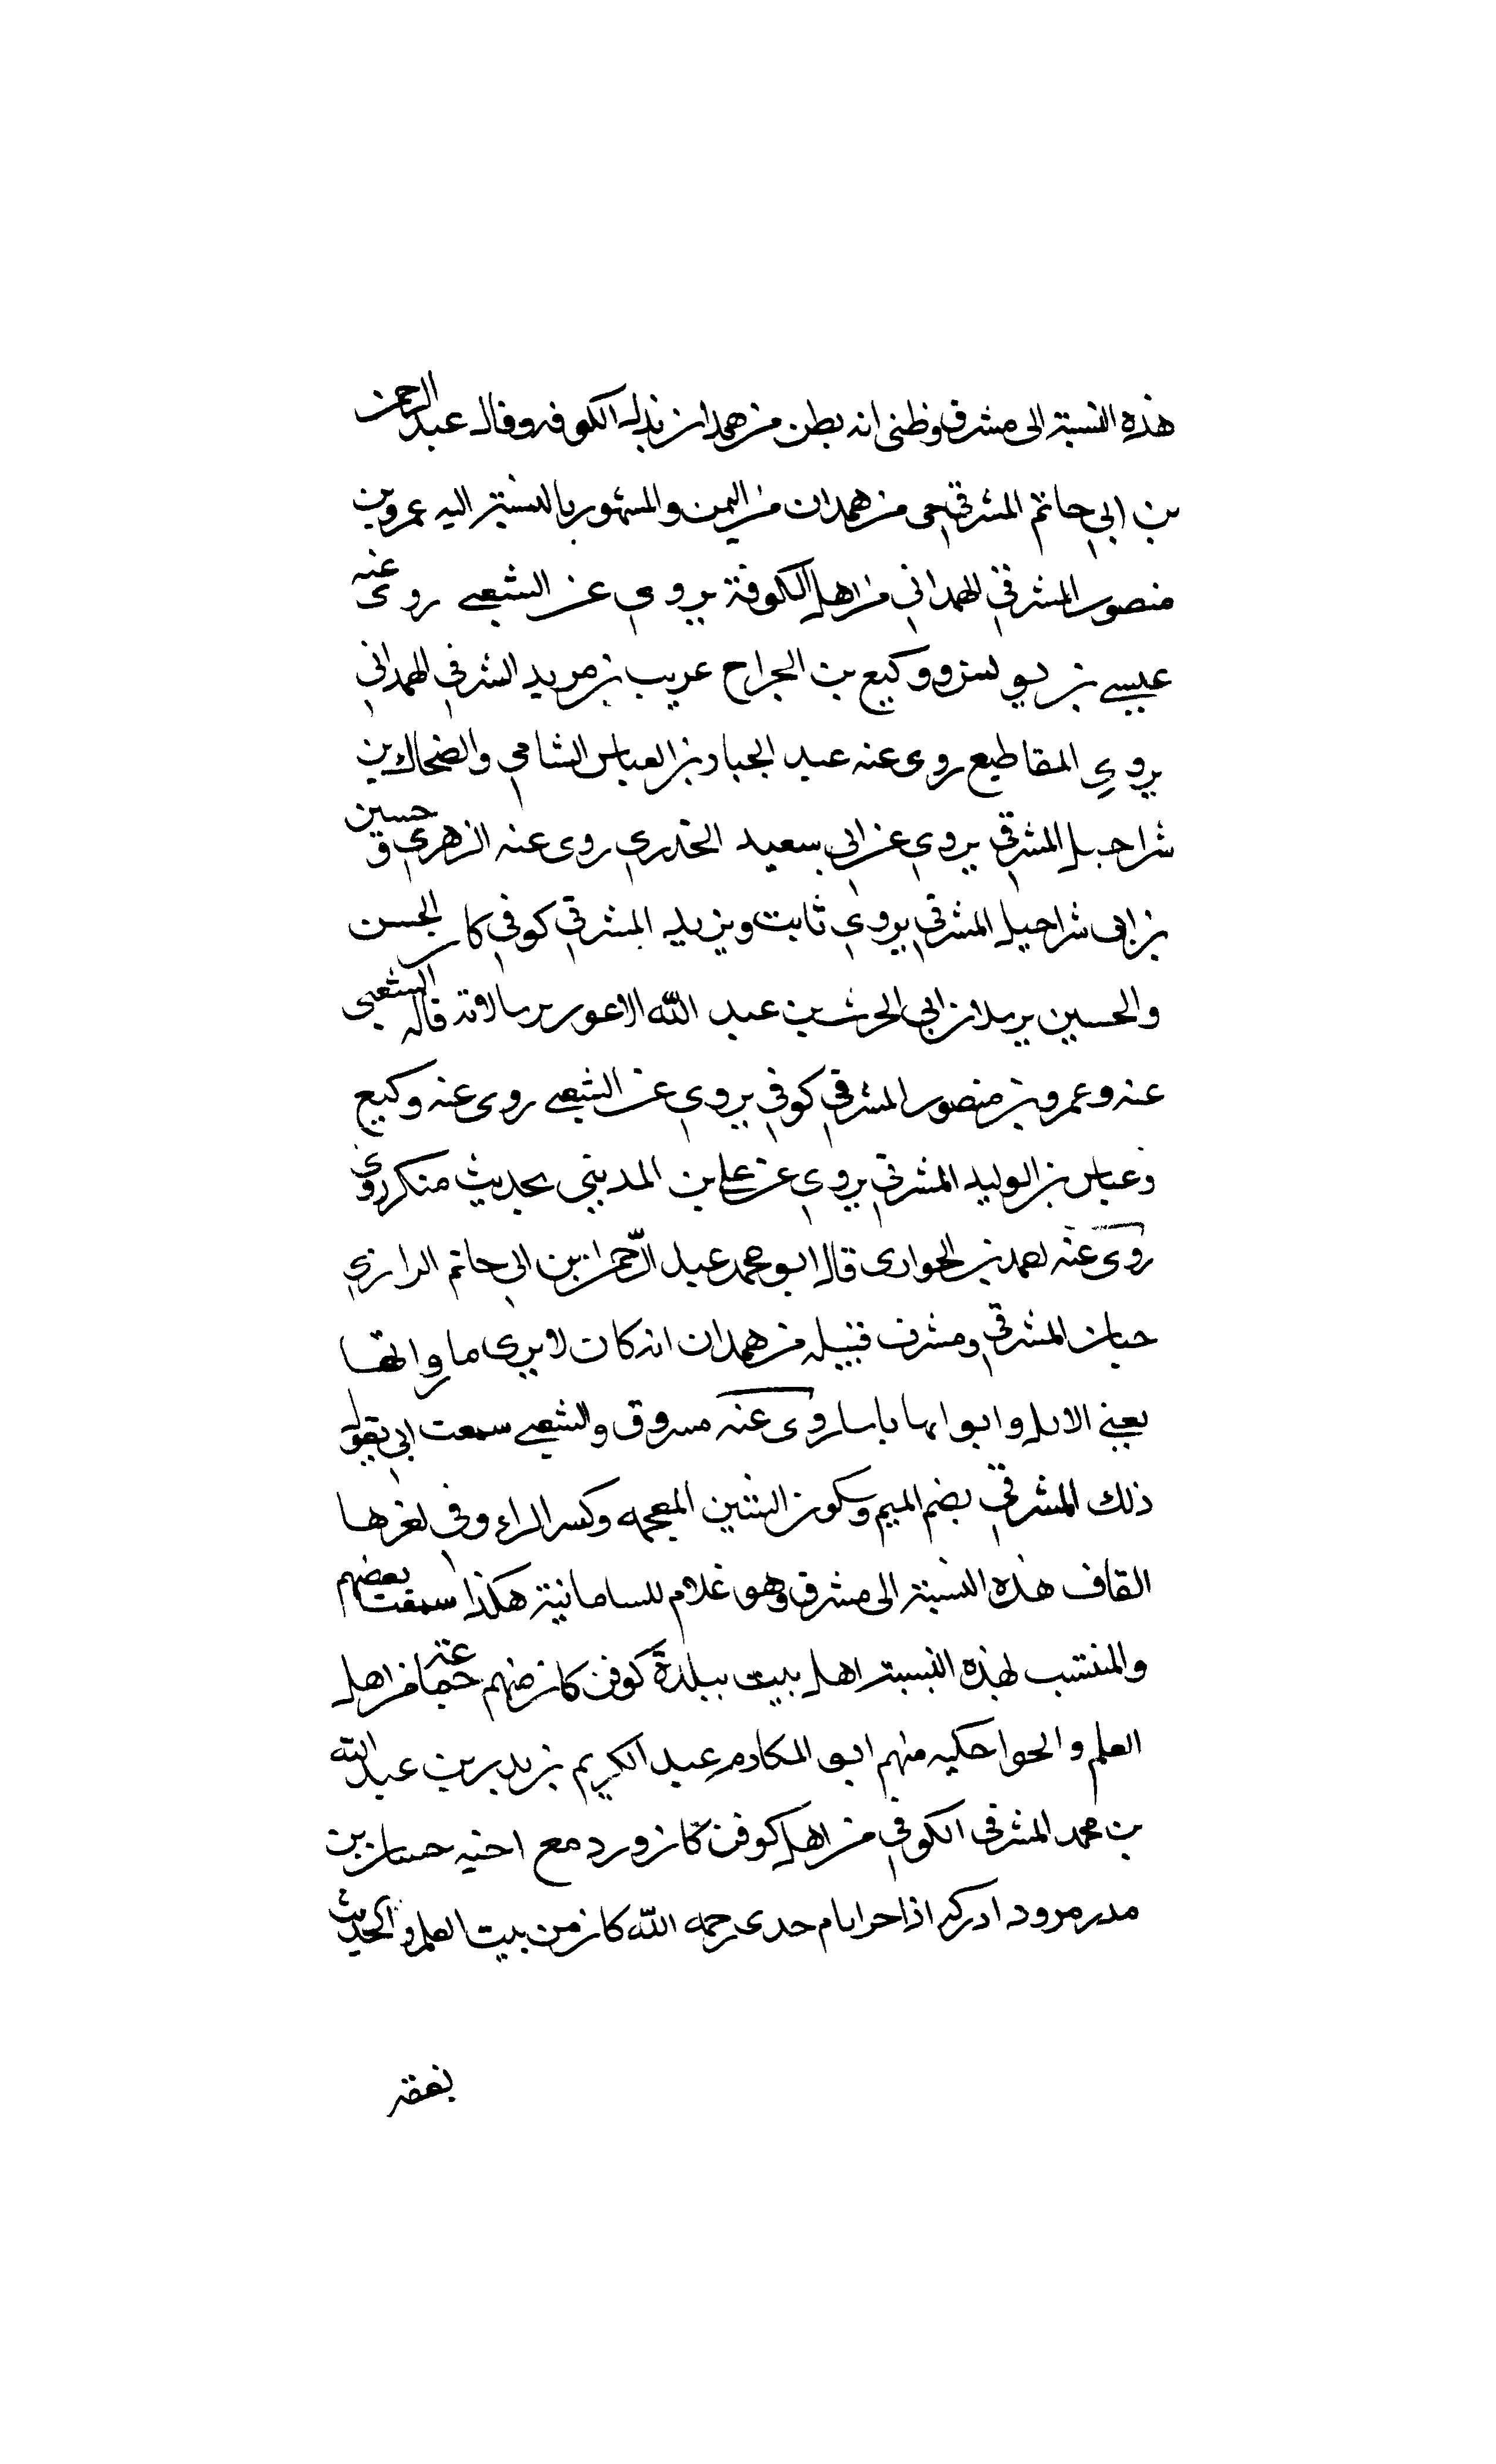 هذه النسبة الى مشرق وظنى انه بطن من همدان نزلت الكوفه وقال عبد الرحمن
بن ابي حاتم المشرقي حي من همدان من اليمن والمشهور بالنسبة اليه عمرو بن
منصور المشرقي الهمداني من اهل الكوفة يروي عن الشعبي روى عنه
عيسى بن يونس ووكيع بن الجراح عريب بن مريد المشرقي الهمداني
يروي المقاطيع روى عنه عبد الجبار بن العباس الشامي والضحاك بن
شراحيل المشرقي يروي عن ابي سعيد الخدري روى عنه الزهري و حسين
بن ابى شراحيل المشرقي يروي ثابت ويزيد المشرقي كوفي كان الحسن
والحسين ابي الحرث بن عبد الله الاعور قاله الشعبي
عنه وعمرو بن منصور المشرقي كوفي يروي عن الشعبي روى عنه وكيع
وعباس بن الوليد المشرقي يروي عن علي بن المديني بحديث منكر روى
روى عنه احمد بن الحوارى قال ابو محمد عبد الرحمن بن ابي حاتم الرازي
حبان المشرقي ومشرق قبيله من همدان انه كان لا يرى ما والتها
يعني الابل وابوالها باسا روى عنه مسروق والشعبي سمعت ابي يقول
ذلك المشرقي بضم الميم وسكون الشين المعجمه وكسر الراء وفي اخرها
القاف هذه النسبة الى مشرق وهو غلام للسامانية هكذا سمعت بعضهم
والمنتسب لهذه النسبة اهل بيت ببلدة كوفن كان منهم جماعة من اهل
العلم والحوا حكيه منهم ابو المكارم عبد الكريم بن بدر بن عبد الله
بن محمد المشرقي الكوفي من اهل كوفن كان ورد مع اخيه حسان بن
بدر مرو د ادرك اذا حرايام جدى رحمه الله كان من بيت العلم والحديث
بفقه